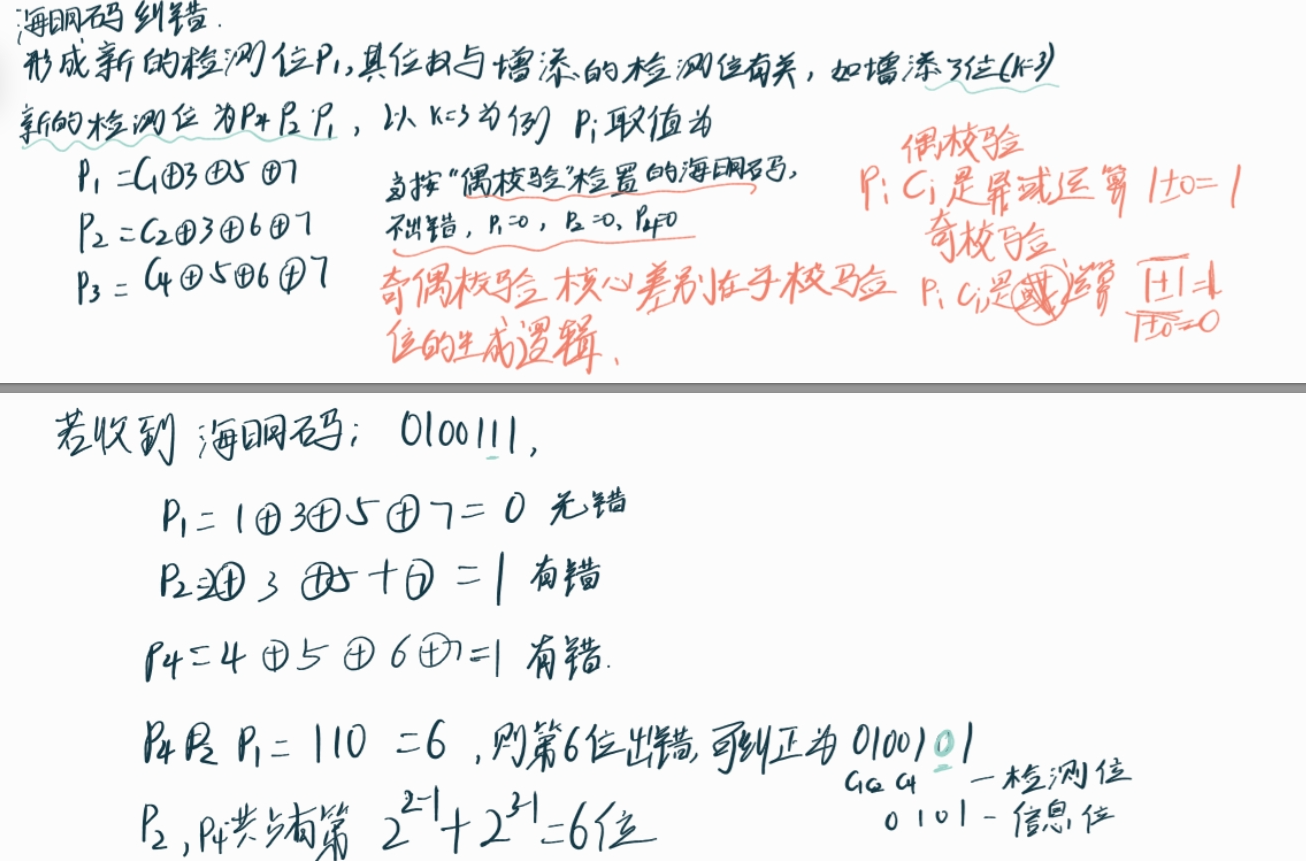 海明码纠错.
形成新的检测位Pi,其位数与增添的检测位有关,如增添3位(k=3)
新的检测位为P4 P2 P1,以k=3为例 Pi取值为
P1 = C1⊕3⊕5⊕7
P2 = C2⊕3⊕6⊕7
P3 = C4⊕5⊕6⊕7
当按"偶校验"检置的海明码,
不出错,P1=0,P2=0,P4=0
奇偶校验 核心差别在于校验
位的生成逻辑.
偶校验
Pi Ci是异或运算 1±0=1
奇校验
Pi Ci是 运算 1±1=1
1±0=0
若收到海明码:0100111,
P1=1⊕3⊕5⊕7=0 无错
P2=2⊕3⊕5+⑦=1 有错
P4=4⊕5⊕6⊕7=1 有错.
P4 P2 P1=110 =6,则第6位出错,可纠正为0100101
C1C2 C4 —检测位
0 101 - 信息位
P2,P4共占有第 2^2-1+2^3-1=6位